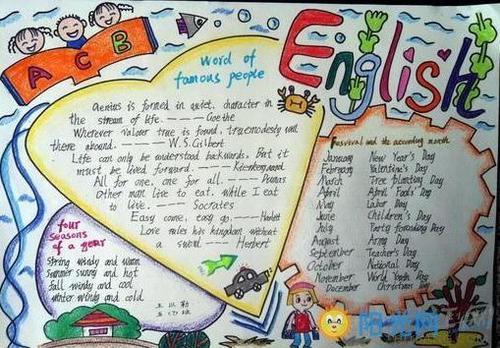 A C B
English
Word of
famous people
Genius is formed in quiet, character in
the stream of life. ———— Goethe
Wherever valour true is found, true modesty will
there abound. ———— W.S.Gilbert
Life can only be understood backwards, But it
must be lived forward. ————
All for one, one for all. ————
Other men live to eat, while I eat
to live. ———— Socrates
Easy come, easy go. ————
Love rules his kingdom without
a sword ———— Herbert
four
seasons
of a year
Spring windy and warm
Summer sunny and hot
fall windy and cool
winter windy and cold
Fasvival and the according month
January New Year's Day
February Valentine's Day
March Tree Planting Day
April April Fools' Day
May Labor Day
June Children's Day
July Party Founding Day
August Army Day
September Teacher's Day
October National Day
November World Youth Day
December Christmas Day
阳光网